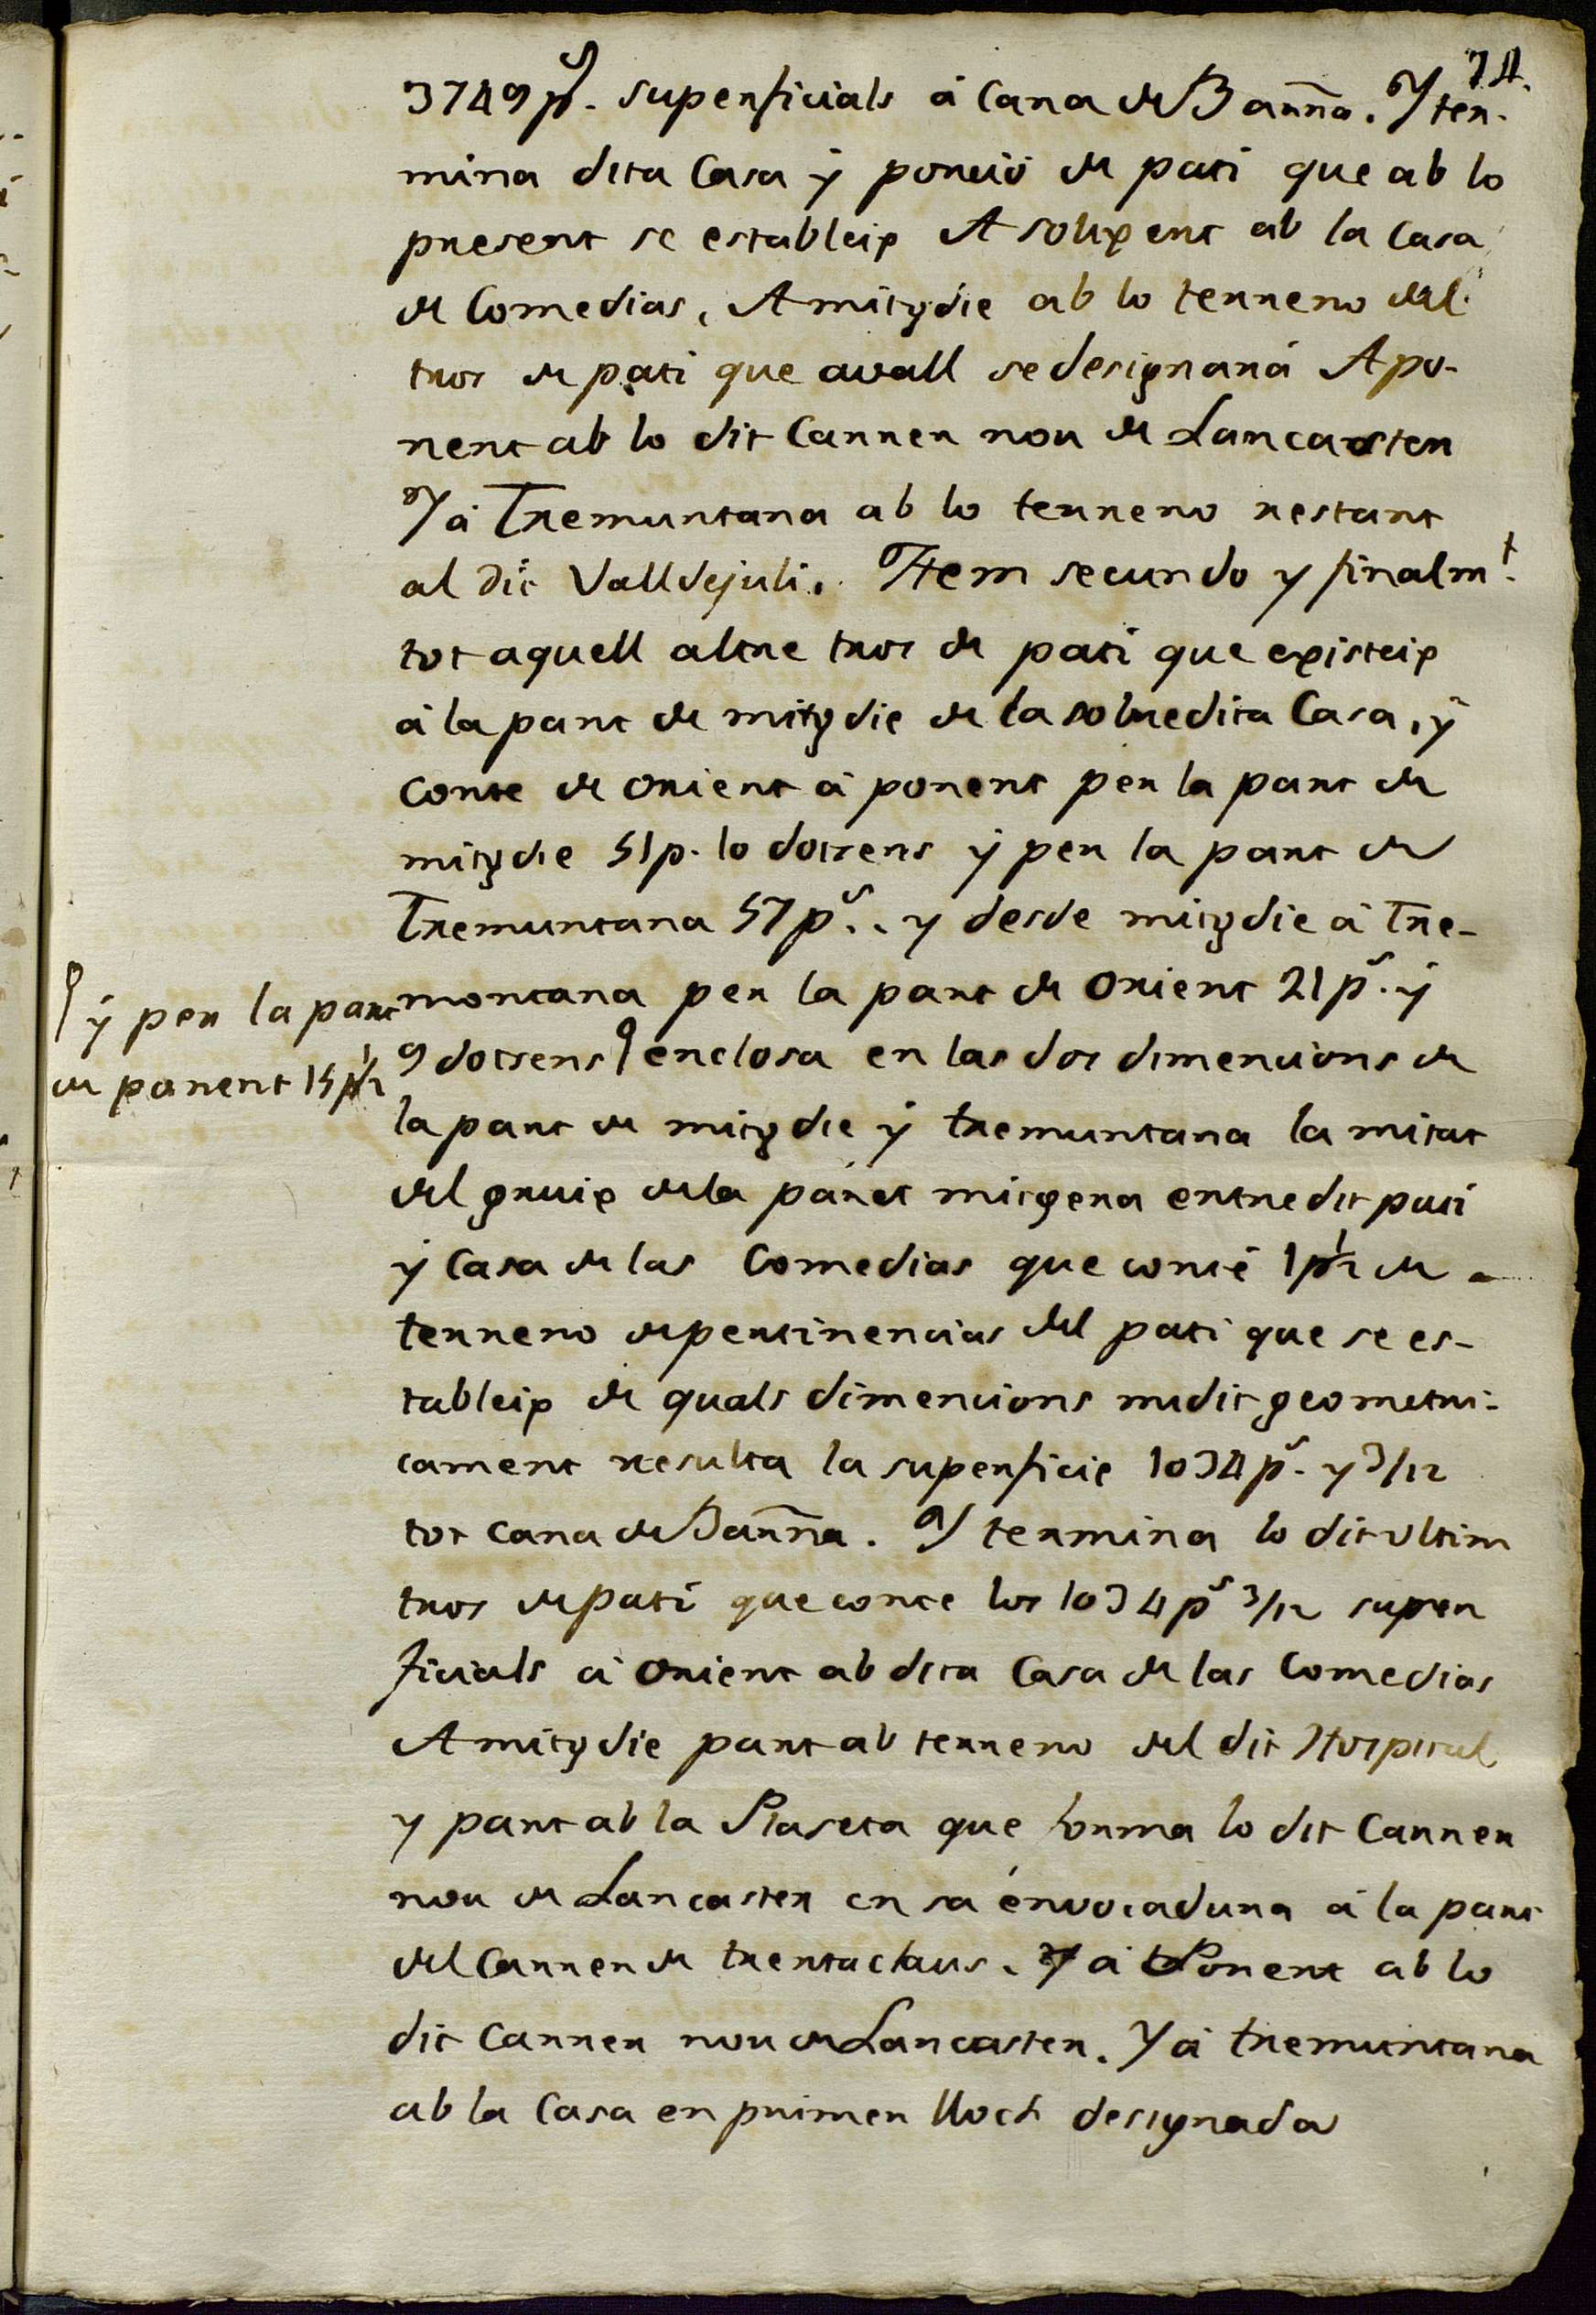 74.
3749 p.s superficials á Cana de Barna. Y ter-
mina dita Casa ÿ porció de pati que ab lo
present se estableix A solixent ab la Casa
de Comedias, A mitgdie ab lo terreno del
tros de pati que avall se designará A po-
nent ab lo dit Carrer nou de Lancaster
Y á Tremuntana ab lo terreno restant
al dit Valldejuli. Item secundo y finalmt.
tot aquell altre tros de pati que existeix
á la part de mitgdie de la sobredita Casa, ÿ
conte de orient á ponent per la part de
mitgdie 51 p. lo dotsens ÿ per la part de
Tremuntana 57 p.s y desde mitgdie á Tre-
montana per la part de Orient 21 p.s ÿ
9 dotsens enclosa en las dos dimencions de
ÿ per la part
de ponent 15 p 1/2
la part de mitgdie ÿ tremuntana la mitat
del gruix de la páret mitgera entre dit pati
ÿ Casa de las Comedias que conté 1 p 1/2 de
terreno de pertinencias del pati que se es-
tableix de quals dimencions midit geometri-
cament resulta la superficie 1034 p.s y 3/12
tot cana de Barna. Y termina lo dit ultim
tros de pati que conte los 1034 p.s 3/12 super
ficials á Orient ab dita Casa de las Comedias
A mitgdie part ab terreno del dit Hospital
y part ab la Plaseta que forma lo dit Carrer
nou de Lancaster en sa énvocadura á la part
del Carrer de trentaclaus. Y á Ponent ab lo
dit Carrer nou de Lancaster. Y á tremuntana
ab la Casa en primer lloch designada